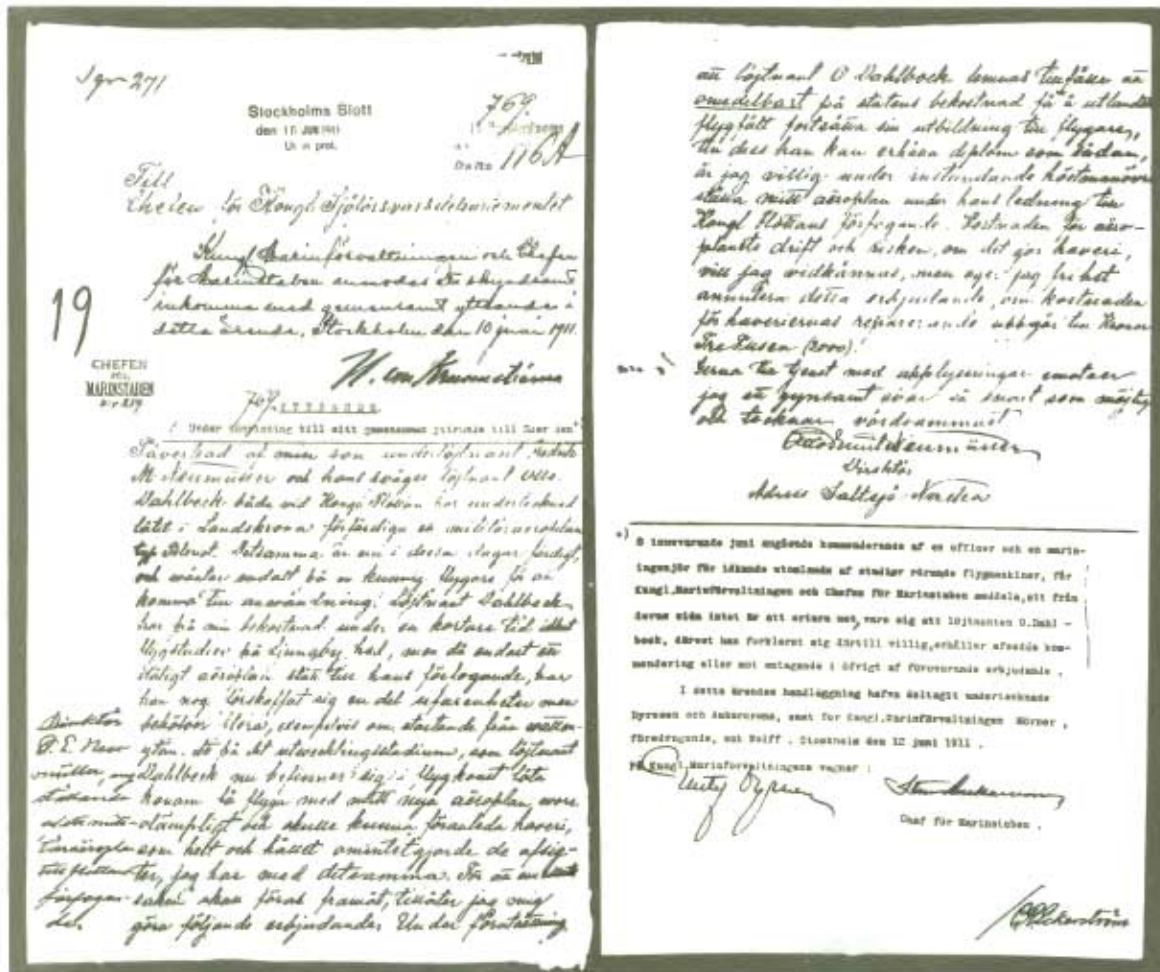 Stockholms Slott
den 10 JUN 1911
Ur in prot.
769
116 A
Till
Chefen för Kongl Sjöförsvarsdepartementet
Kungl Marinförvaltningen och Chefen
för Marinstaben anmodas att skyndsamt
inkomma med gemensamt yttrande i
detta ärende. Stockholm den 10 juni 1911.
19
CHEFEN
FÖR
MARINSTABEN
769.
YTTRANDE
Under till sitt gemensamma yttrande till Eder den
Såväl af min son underlöjtnant
M Neumüller och hans svåger löjtnant Olle
Dahlbeck båda vid Kongl Flottan har undertecknad
låtit i Landskrona förfärdiga en militäraeroplan
typ Bleriot. Detsamma är nu i dessa dagar färdigt,
och väntar endast på en kunnig flygare för att
komma till användning. Löjtnant Dahlbeck
har på min bekostnad under en kortare tid idkat
flygstudier på Ljungby hed, men då endast ett
aëroplan stått till hans förfogande, har
han nog förskaffat sig en del erfarenheter men
behöver flera, exempelvis om startande från vatten-
ytan. Att på det utvecklingsstadium, som löjtnant
Dahlbeck nu befinner sig i flygkonst låta
honom få flyga med mitt nya aëroplan, vore
olämpligt och skulle kunna föranleda haveri,
som helt och hållet omintetgjorde de afsig-
ter, jag har med detsamma. För att
saken skall föras framåt, tillåter jag mig
göra följande erbjudande. Under förutsättning
Direktör
O. E. Neu-
müller,
förfogan-
de.
att löjtnant O Dahlbeck lemnas tillfälle att
omedelbart på statens bekostnad få å utländskt
flygfält fortsätta sin utbildning till flygare,
till dess han kan erhålla diplom som sådan,
är jag villig under instundande höstmanöver
ställa mitt aëroplan under hans ledning till
Kongl Flottans förfogande. Kostnaden för aëro-
planets drift och risken, om det gör haveri,
vill jag vidkännas, men eger jag frihet
annullera detta erbjudande, om kostnaden
för haveriernas reparerande uppgår till Kronor
Tre tusen (3000).
Gerna till tjenst med upplysningar emotser
jag ett gynsamt svar så snart som möjligt
och tecknar vördsammast
Otto Emil Neumüller
Direktör
Adress Saltsjö-Nacka
8 innevarande juni angående kommenderande af en officer och en marin-
ingenjör för idkande utomlands af studier rörande flygmaskiner, får
Kungl. Marinförvaltningen och Chefen för Marinstaben meddela, att från
deras sida intet är att erinra mot, vare sig att löjtnanten O. Dahl-
beck, därest han förklarat sig därtill villig, erhåller afsedd kom-
mendering eller mot antagande i öfrigt af förevarande erbjudande.
I detta ärendes handläggning hafva deltagit undertecknade
Dyrssen och Ankarcrona, samt för Kungl. Marinförvaltningen Mörner,
föredragande, och Wolff. Stockholm den 12 juni 1911.
På Kungl. Marinförvaltningens vägnar:
Chef för Marinstaben.